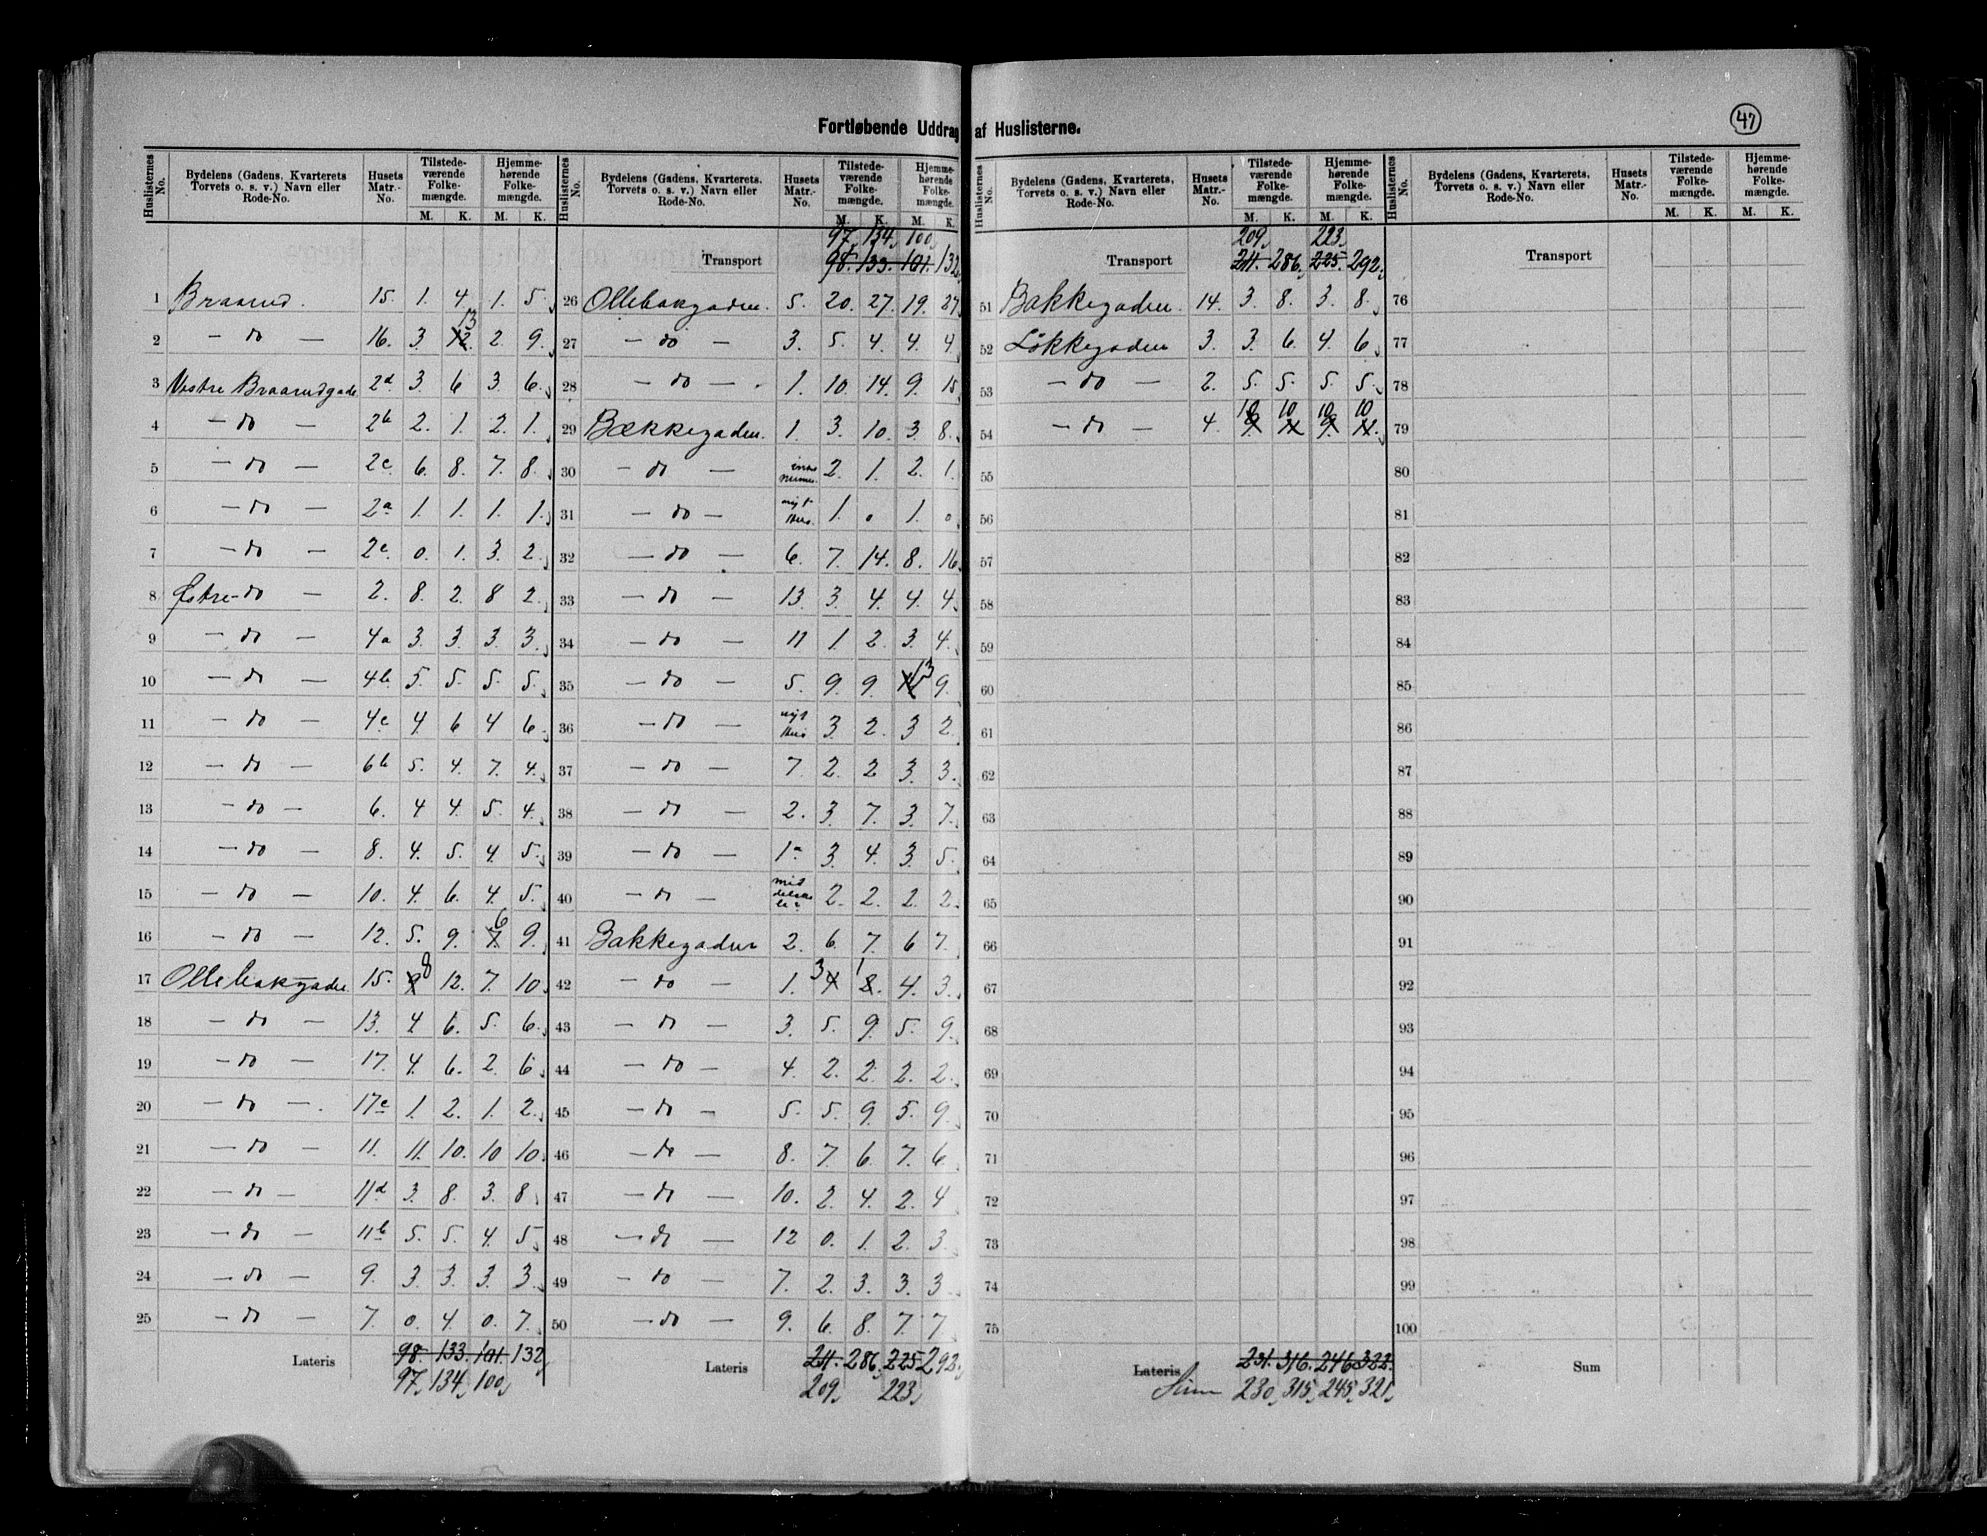 Fortløbende Uddrag af Huslisterne.
47
Huslisternes No. Bydelens (Gadens, Kvarterets Torvets o. s. v.) Navn eller Rode-No. Husets Matr.-No. Tilstedeværende Folkemængde. M. K. Hjemmehørende Folkemængde. M. K.
1 Braarud. 15. 1. 4. 1. 5.
2 - do - 16. 3. 12. 13 2. 9.
3 Vestre Braarudgade 2d 3. 6 3. 6.
4 - do - 2b 2. 1. 2. 1.
5 - do - 2c. 6. 8. 7. 8.
6 - do - 2a 1. 1. 1. 1.
7 - do - 2e. 0. 1. 3. 2.
8 Østre - do - 2. 8. 2. 8 2.
9 - do - 4a 3. 3. 3. 3.
10 - do - 4b. 5. 5. 5. 5.
11 - do - 4c 4. 6 4 6.
12 - do - 6b 5. 4. 7. 4.
13 - do - 6. 4 4. 5. 4.
14 - do - 8. 4. 5. 4. 5.
15 - do - 10. 4. 6. 4. 5.
16 - do - 12. 5. 9. 7. 6 9.
17 Ollebakgade. 15. 9 8 12. 7. 10.
18 - do - 13. 4 6. 5. 6.
19 - do - 17. 4. 6. 2. 6.
20 - do - 17c 1. 2. 1. 2.
21 - do - 11. 11. 10. 10 10.
22 - do - 11d 3. 8. 3. 8.
23 - do - 11b 5. 5. 4. 5.
24 - do - 9. 3. 3. 3. 3.
25 - do - 7. 0. 4. 0. 7.
Lateris 98. 133. 101. 132
97, 134, 100,
Huslisternes No. Bydelens (Gadens, Kvarterets, Torvets o. s. v.) Navn eller Rode-No. Husets Matr.-No. Tilstedeværende Folkemængde. M. K. Hjemmehørende Folkemængde. M. K.
97, 134, 100,
Transport 98. 133. 101. 132
26 Ollebakgaden. 5. 20. 27. 19. 27
27 - do - 3. 5. 4. 4. 4
28 - do - 1. 10. 14. 9. 15
29 Bækkegaden. 1. 3. 10. 3. 8.
30 - do - 2. 1. 2. 1.
31 - do - nyt Hus. 1. 0 1. 0
32 - do - 6. 7. 14. 8. 16
33 - do - 13. 3. 4. 4. 4.
34 - do - 11 1. 2. 3. 4.
35 - do - 5. 9. 9. 13 9.
36 - do - nyt Hus 3. 2. 3 2
37 - do - 7. 2. 2 3. 3.
38 - do - 2. 3. 7. 3. 7.
39 - do - 1a 3. 4. 3. 5.
40 - do - 2. 2. 2. 2.
41 Bakkegaden 2. 6. 7. 6 7.
42 - do - 1. 3 4 1 8. 4. 3.
43 - do - 3. 5. 9. 5. 9.
44 - do - 4. 2. 2. 2. 2.
45 - do - 5. 5. 9. 5. 9.
46 - do - 8. 7. 6. 7. 6
47 - do - 10. 2. 4. 2. 4
48 - do - 12 0. 1. 2. 3.
49 - do - 7. 2. 3. 3. 3
50 - do - 9. 6. 8. 7. 7
Lateris 211. 286, 225. 292,
209, 223,
Huslisternes No. Bydelens (Gadens, Kvarterets, Torvets o. s. v.) Navn eller Rode-No. Husets Matr.-No. Tilstedeværende Folkemængde. M. K. Hjemmehørende Folkemængde. M. K.
209, 223,
Transport 211. 286, 225. 292,
51 Bakkegaden. 14. 3. 8. 3. 8.
52 Løkkegaden 3. 3. 6. 4. 6
53 - do - 2. 5. 5. 5. 5.
54 - do - 4. 9. 10 11 10 9. 10 11. 10
55
56
57
58
59
60
61
62
63
64
65
66
67
68
69
70
71
72
73
74
75
Lateris 231. 316. 246. 322.
Sum 230, 315, 245, 321,
Huslisternes No. Bydelens (Gadens, Kvarterets, Torvets o. s. v.) Navn eller Rode-No. Husets Matr.-No. Tilstedeværende Folkemængde. M. K. Hjemmehørende Folkemængde. M. K.
Transport
76
77
78
79
80
81
82
83
84
85
86
87
88
89
90
91
92
93
94
95
96
97
98
99
100
Sum